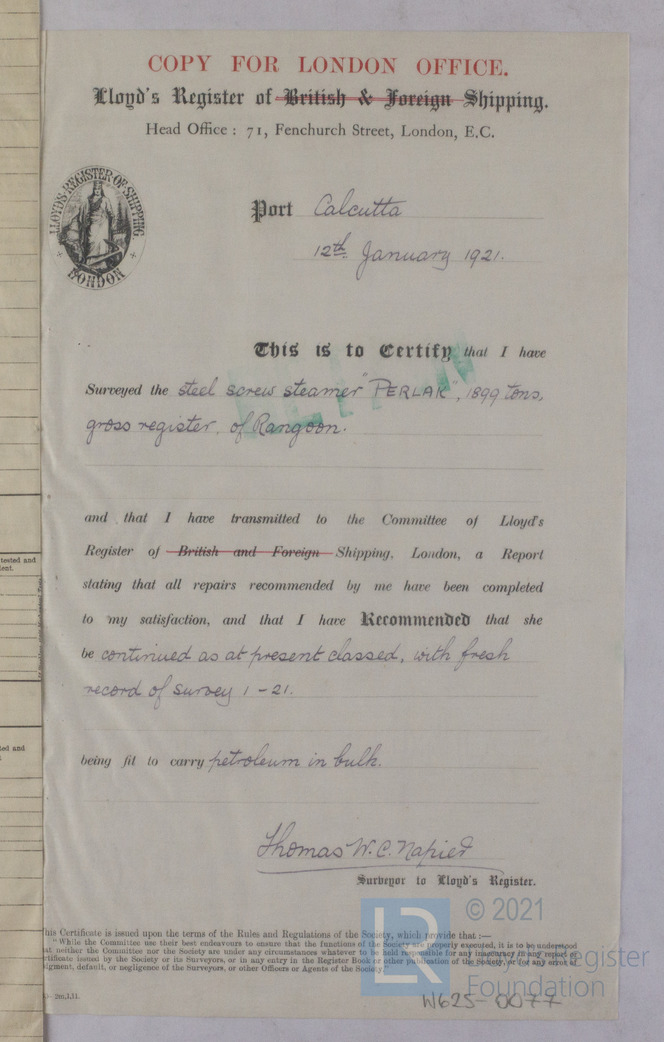 COPY FOR LONDON OFFICE.
Lloyd's Register of British & Foreign Shipping.
Head Office : 71, Fenchurch Street, London, E.C.
LLOYD'S REGISTER OF SHIPPING
LONDON
Port Calcutta
12th January 1921.
This is to Certify that I have
Surveyed the steel screw steamer "PERLAK", 1899 tons,
gross register, of Rangoon.
and that I have transmitted to the Committee of Lloyd's
Register of British and Foreign Shipping, London, a Report
stating that all repairs recommended by me have been completed
to my satisfaction, and that I have Recommended that she
be continued as at present classed, with fresh
record of survey 1-21.
being fit to carry petroleum in bulk.
Thomas W. C. Napier
Surveyor to Lloyd's Register.
his Certificate is issued upon the terms of the Rules and Regulations of the Society, which provide that :—
"While the Committee use their best endeavours to ensure that the functions of the Society are properly executed, it is to be understood
at neither the Committee nor the Society are under any circumstances whatever to be held responsible for any inaccuracy in any report or
rtificate issued by the Society or its Surveyors, or in any entry in the Register Book or other publication of the Society, or for any error of
dgment, default, or negligence of the Surveyors, or other Officers or Agents of the Society."
2m,1,11.
© 2021
LR
Lloyd's Register
Foundation
W625-0077
tested and
ent.
ted and